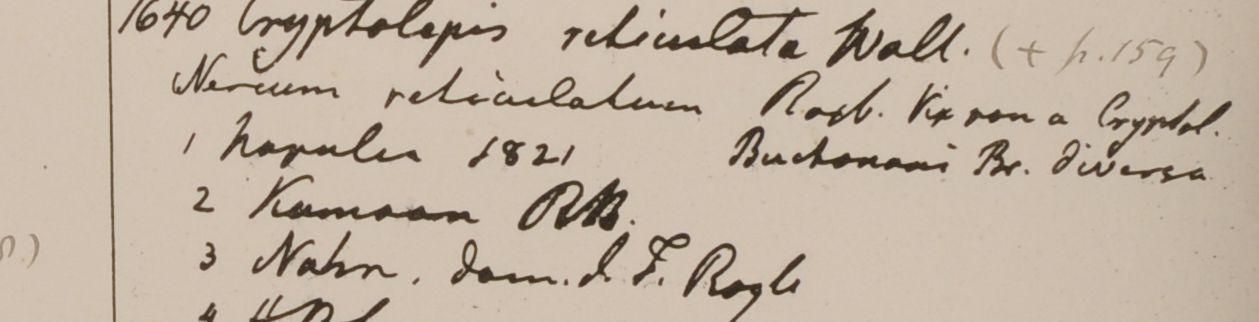 1640 Cryptolepis reticulata Wall. (+ p. 159)
Nerium reticulatum Roxb. Vix non a Cryptol.
1 Napalia 1821 Buchanani Br. diversa
2 Kamaon RB.
3 Nahn. dom. d. F. Royle
4